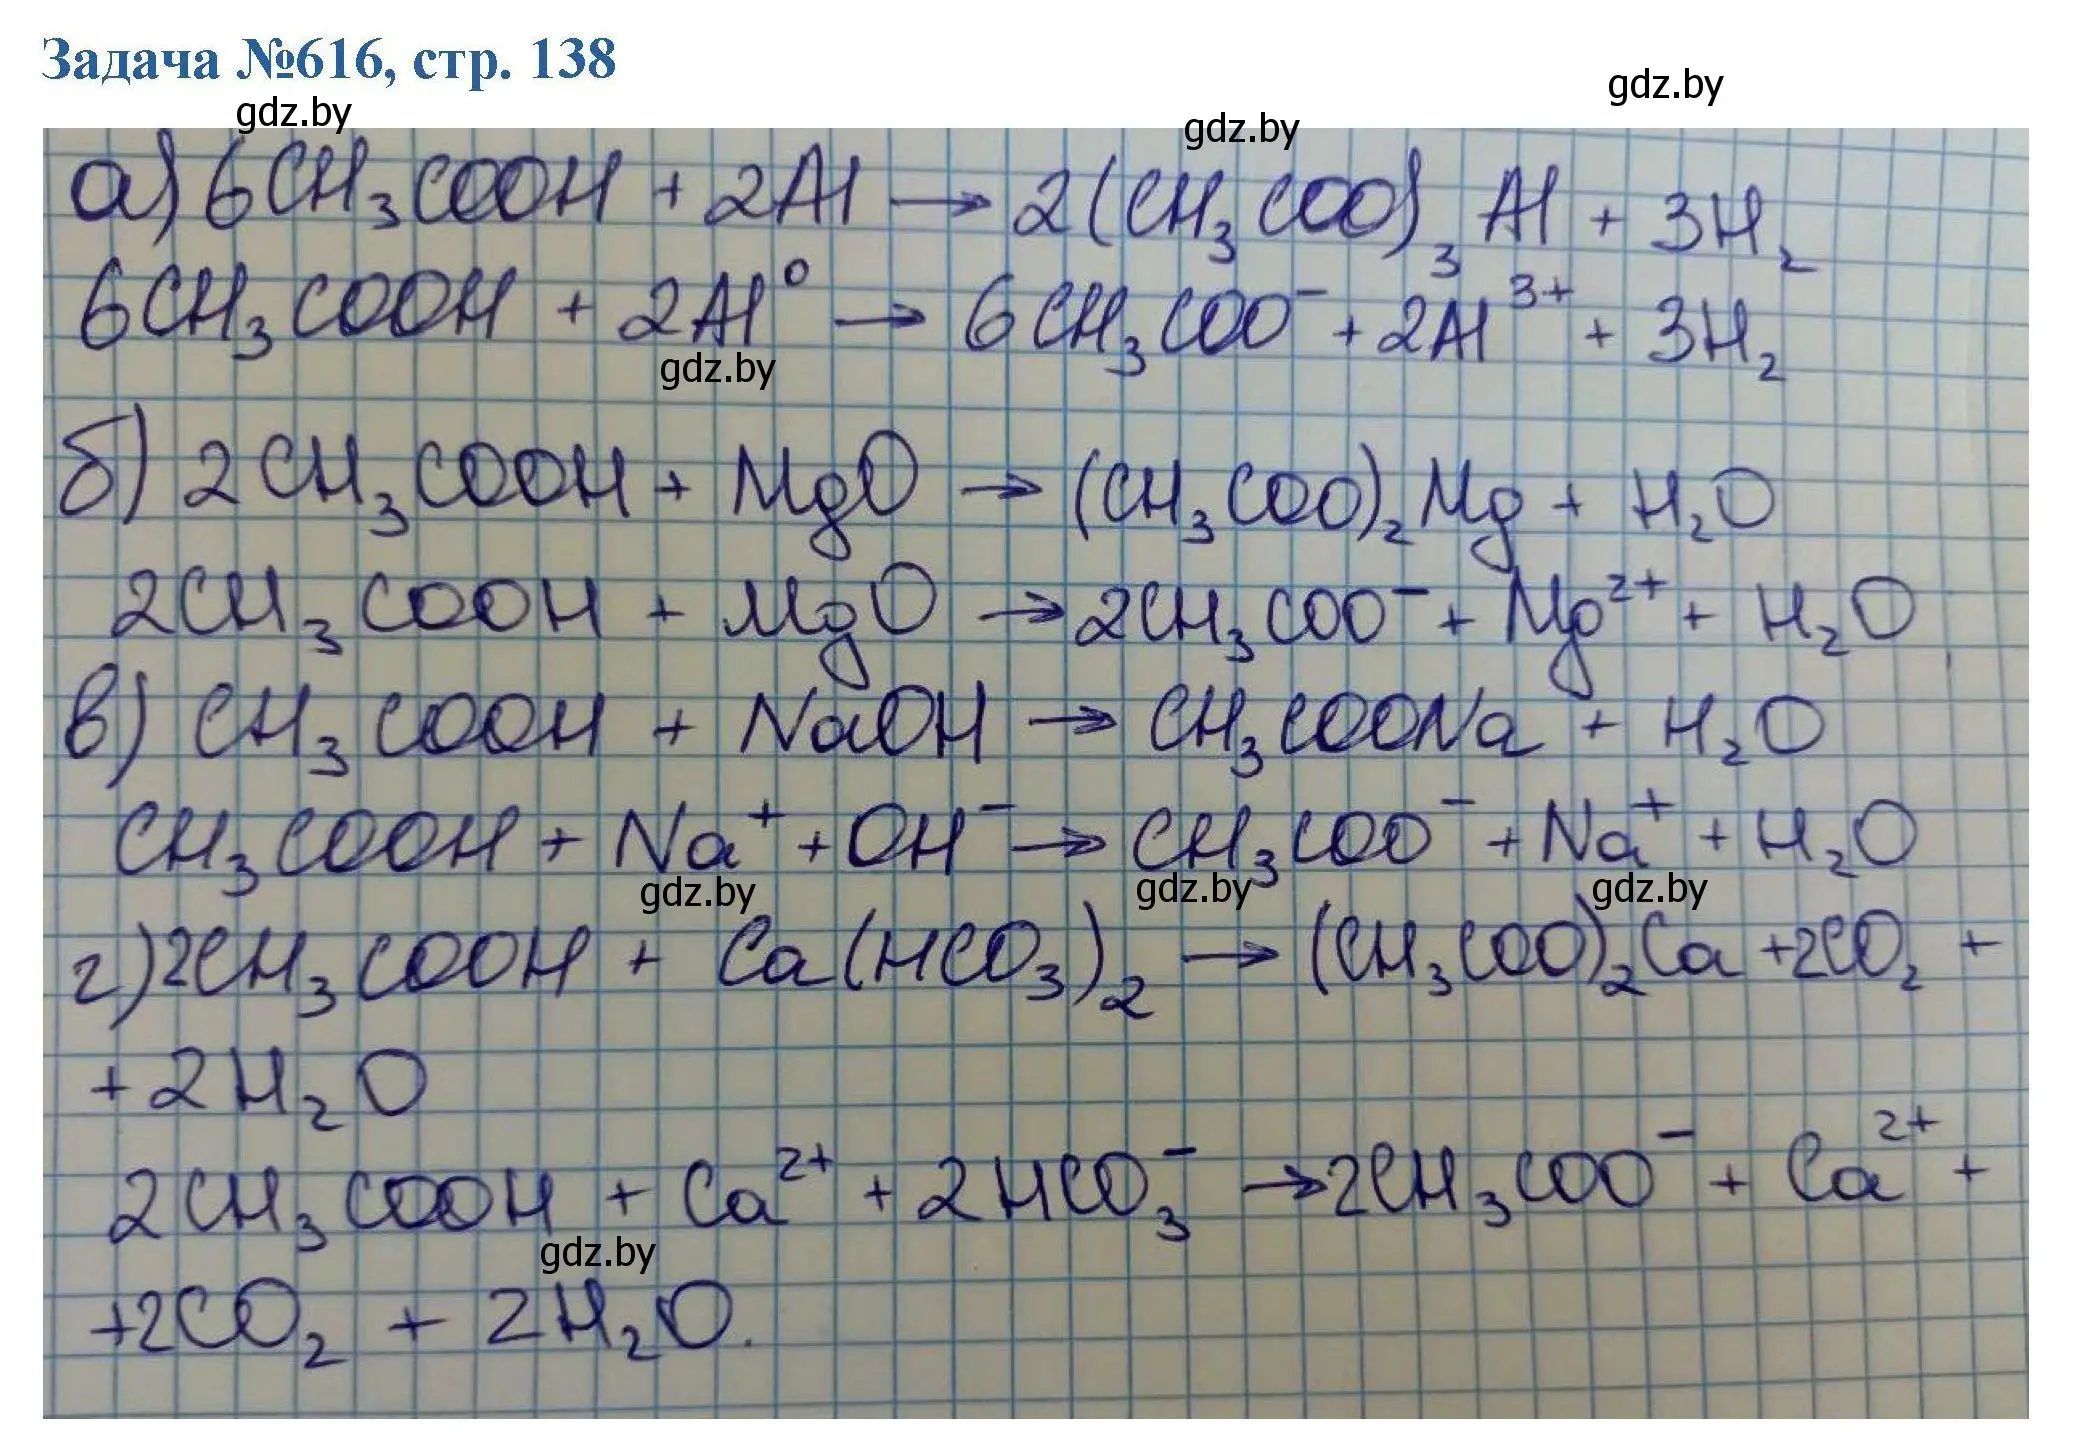 Задача №616, стр. 138
gdz.by
gdz.by
gdz.by
а) 6CH₃COOH + 2Al → 2(CH₃COO)₃Al + 3H₂
6CH₃COOH + 2Al⁰ → 6CH₃COO⁻ + 2Al³⁺ + 3H₂
gdz.by
б) 2CH₃COOH + MgO → (CH₃COO)₂Mg + H₂O
2CH₃COOH + MgO → 2CH₃COO⁻ + Mg²⁺ + H₂O
в) CH₃COOH + NaOH → CH₃COONa + H₂O
CH₃COOH + Na⁺ + OH⁻ → CH₃COO⁻ + Na⁺ + H₂O
gdz.by gdz.by gdz.by
г) 2CH₃COOH + Ca(HCO₃)₂ → (CH₃COO)₂Ca + 2CO₂ +
+ 2H₂O
2CH₃COOH + Ca²⁺ + 2HCO₃⁻ → 2CH₃COO⁻ + Ca²⁺ +
gdz.by
+ 2CO₂ + 2H₂O.